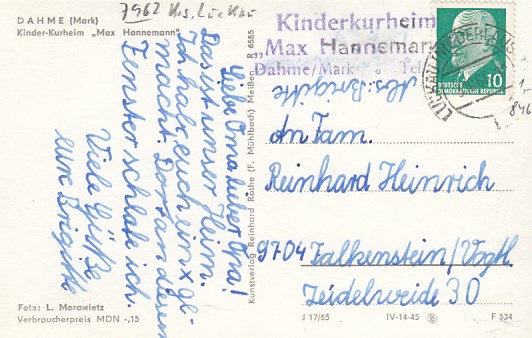 DAHME (Mark)
Kinder-Kurheim „Max Hannemann"
7962 Krs. Luckau
Liebe Oma lieber Opa!
Das ist unser Heim.
Ich habe euch ein x ge-
macht. Dort an diesem
Fenster schlafe ich.
Viele Grüße
eure Brigitte
Foto: L. Morawietz
Verbraucherpreis MDN -,15
Kunstverlag Reinhard Rothe (F. Mühlbach) Meißen R 6585
Kinderkurheim
„Max Hannemann
Dahme/Mark Tel
Abs. Brigitte
10
DEUTSCHE
DEMOKRATISCHE REPUBLIK
An Fam.
Reinhard Heinrich
9704 Falkenstein/Vogtl.
Zeidelweide 30
J 17/65 IV-14-45 F 534